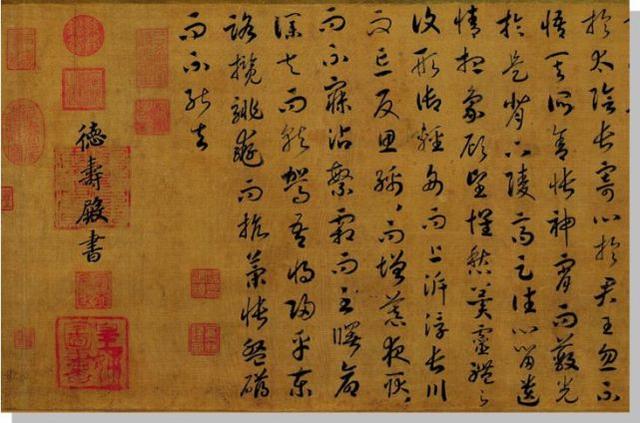 於太陰長寄心於君王忽不
悟其所舍悵神霄而蔽光
於是背下陵高足往心留遺
情想象顧望懷愁冀靈體之
復形御輕舟而上泝浮長川
而忘反思綿綿而增慕夜耿耿
而不寐沾繁霜而至曙命
僕夫而就駕吾將歸乎東
路攬騑轡而抗策悵盤桓
而不能去
德壽殿書